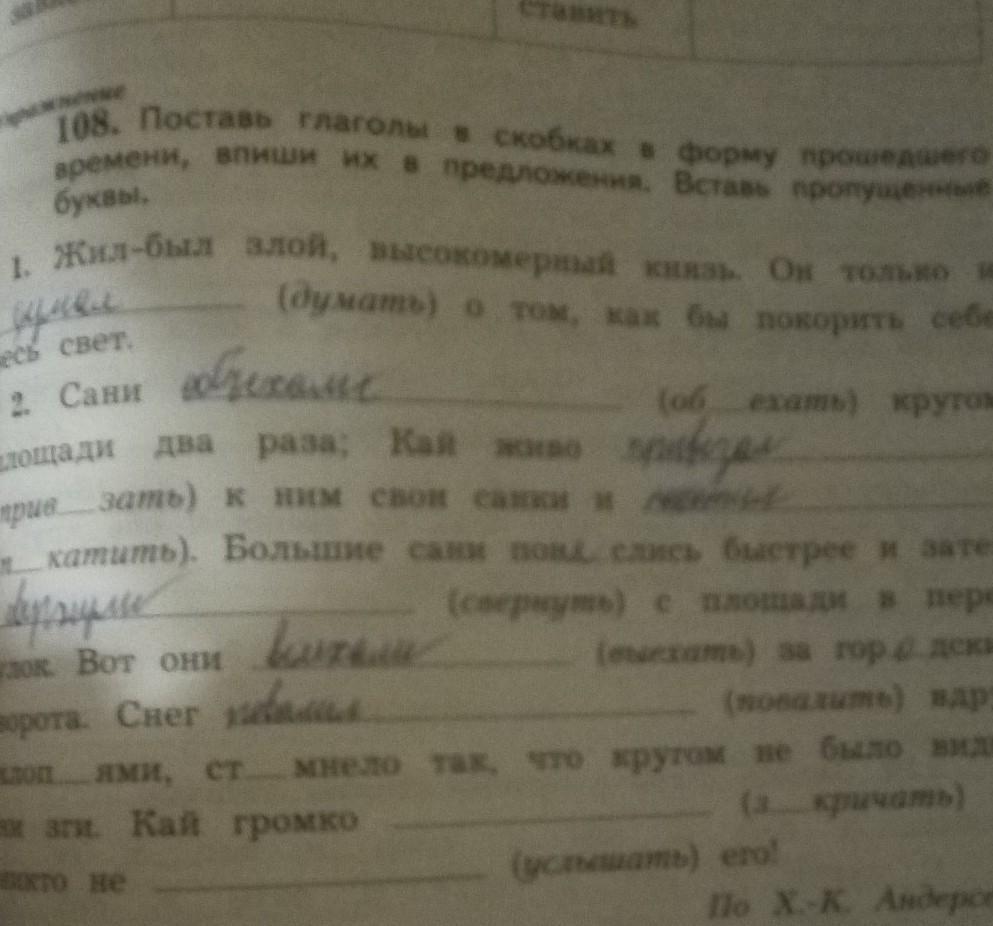 ставить
108. Поставь глаголы в скобках в форму прошедшего
времени, впиши их в предложения. Вставь пропущенные
буквы.
1. Жил-был злой, высокомерный князь. Он только и
думал (думать) о том, как бы покорить себе
есь свет.
2. Сани объехали (об__ехать) кругом
площади два раза; Кай живо привязал
прив__зать) к ним свои санки и
п__катить). Большие сани пон__слись быстрее и зате
свернули (свернуть) с площади в пере
улок. Вот они выехали (выехать) за гор о дски
ворота. Снег повалил (повалить) вдру
хлоп__ями, ст__мнело так, что кругом не было видн
ни зги. Кай громко ____ (з__кричать)
никто не ____ (услышать) его!
По Х.-К. Андерсе